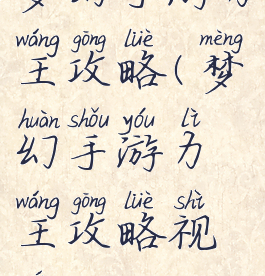 wáng gōng lüè mèng
王攻略(梦
huàn shǒu yóu lì
幻手游力
wáng gōng lüè shì
王攻略视